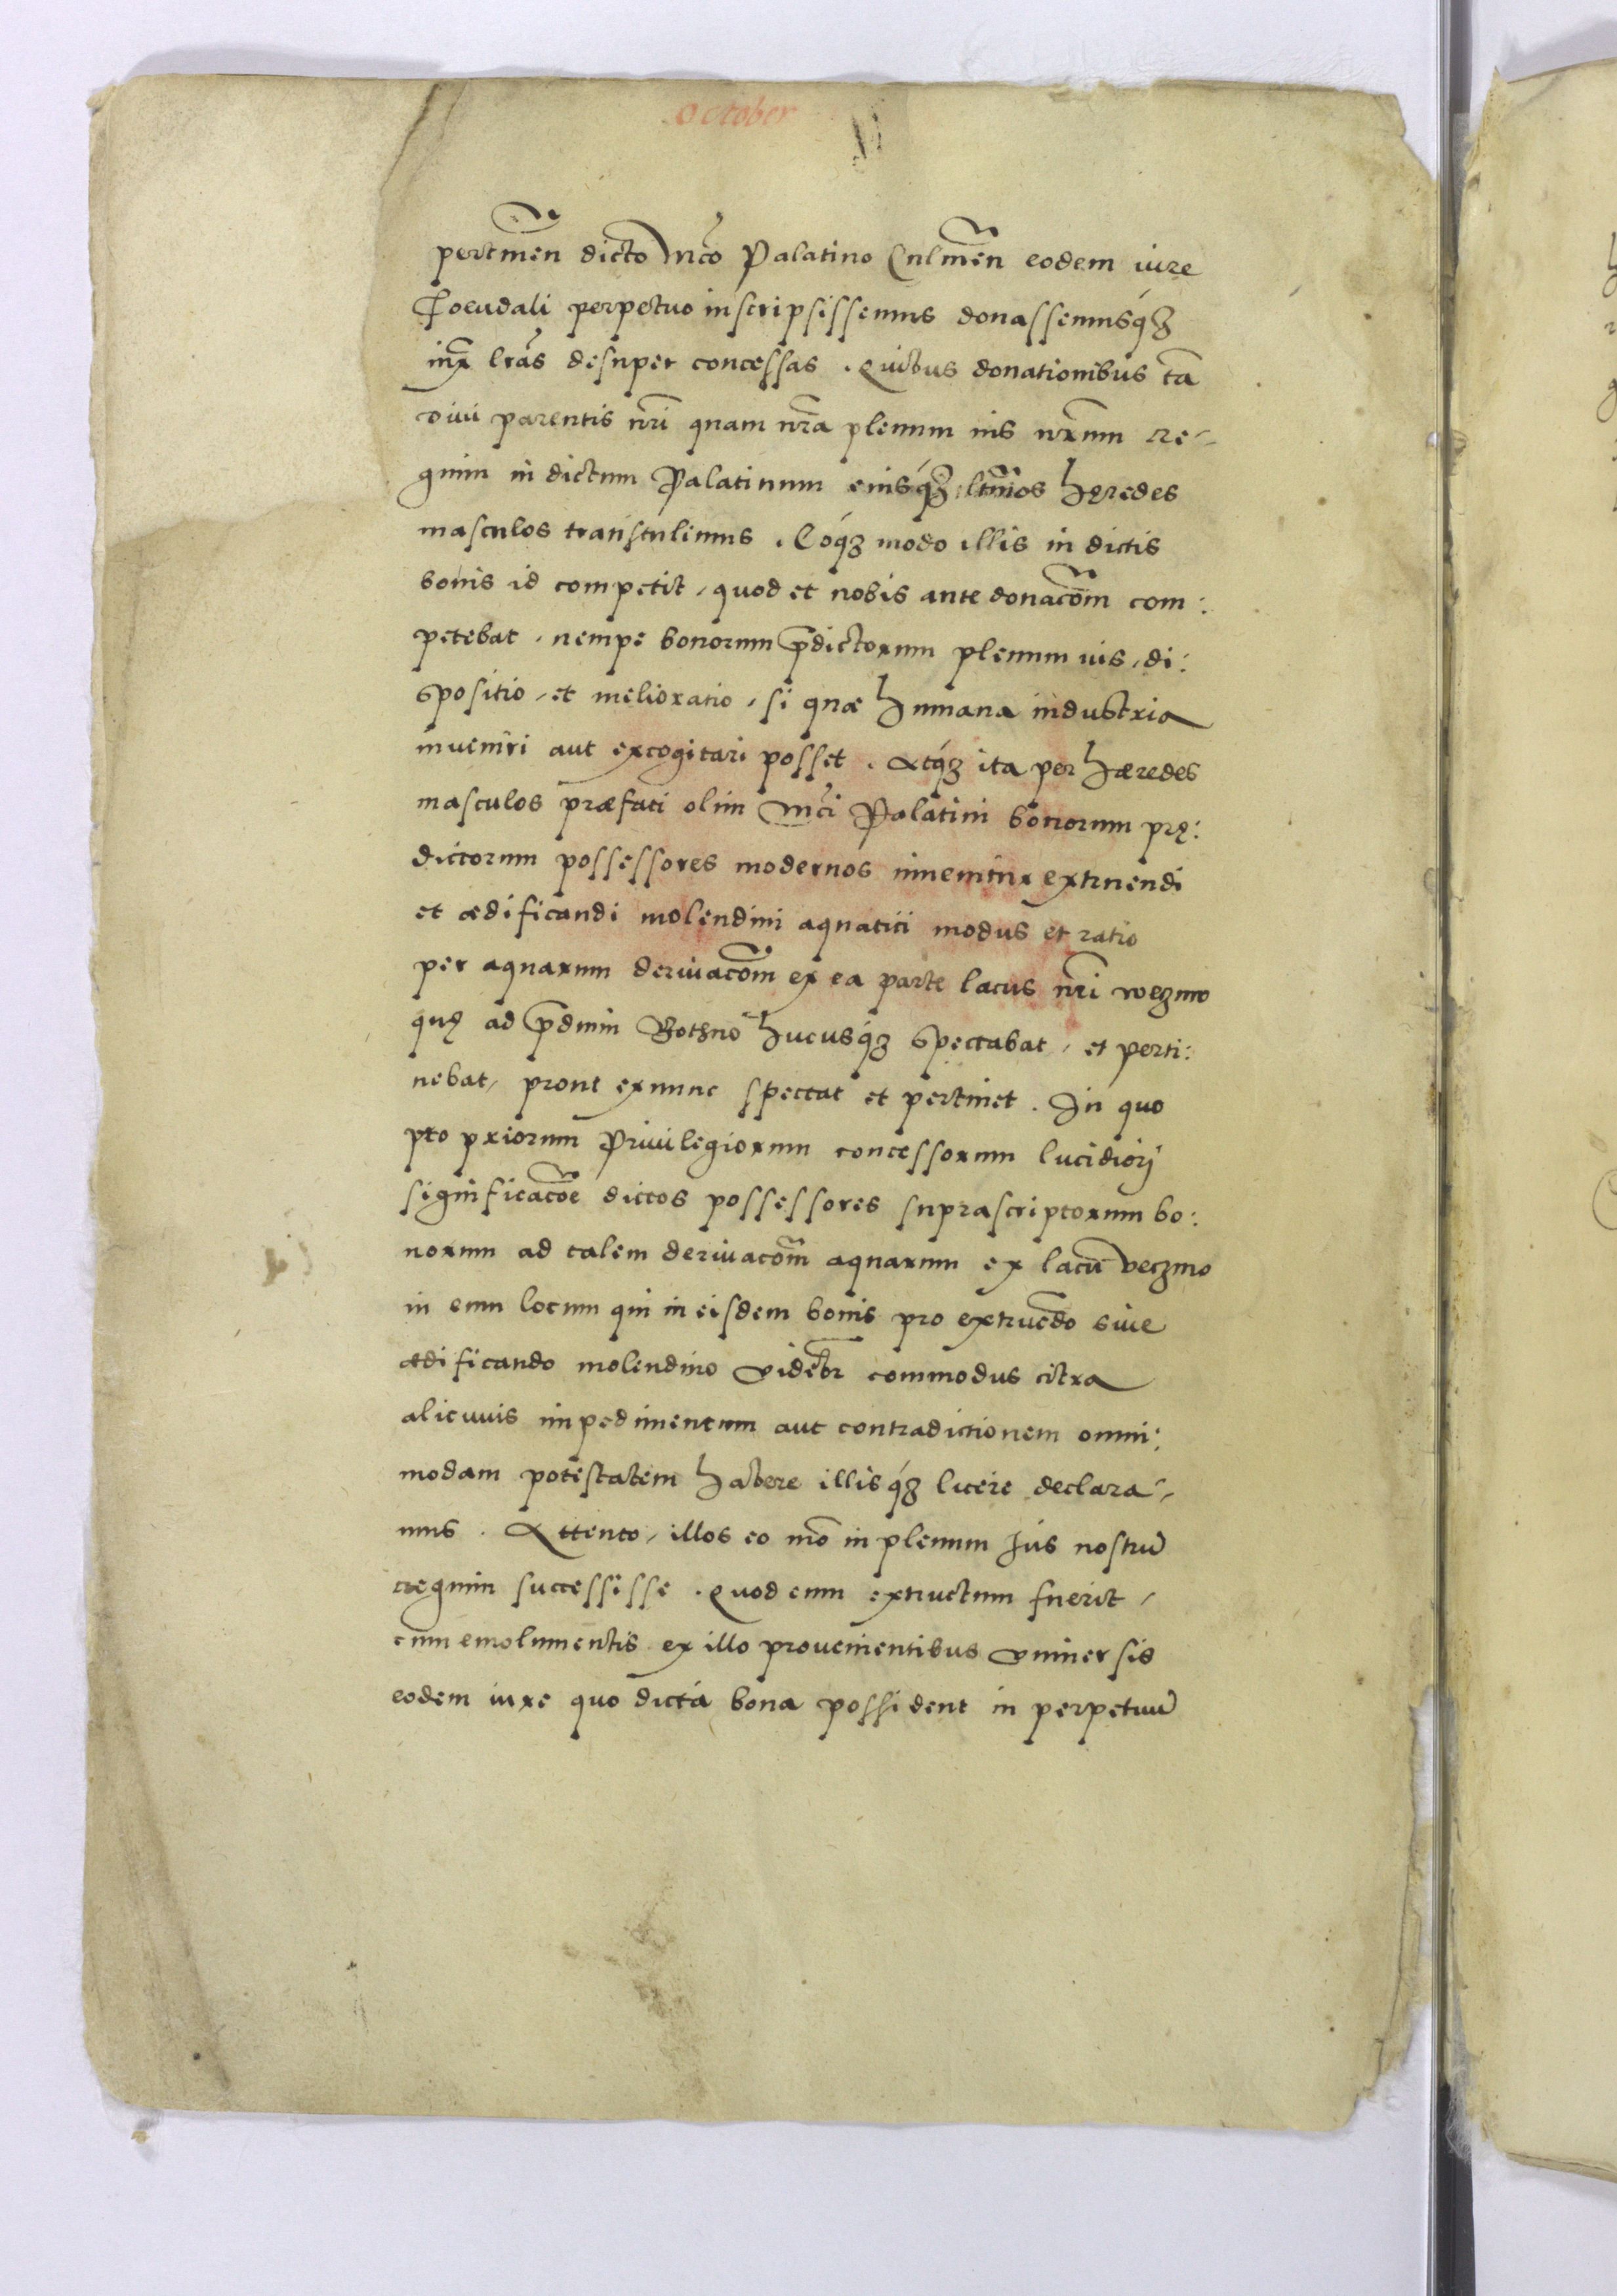 October
pertineñ dicto Mco Palatino Culmeñ eodem iure
foeudali perpetuo inscripsissemus donassemusq́ꝫ
iux̃ lrãs desuper concessas . Quibus donationibus tã
diui parentis nrĩ quam nrã plenum ius nrẽum re⸗
gium in dictum Palatinum eiusq́ꝫ ltĩmos hęredes
masculos transtulimus . Eóq́ꝫ modo illis in dictis
bonis id competit, quod et nobis ante donacõm com:
petebat, nempe bonorum p̃dictorum plenum ius, di:
spositio, et melioratio, si quæ humana industria
inueniri aut excogitari posset . Atq́ꝫ ita per hæredes
masculos præfati olim Mci Palatini bonorum prę:
dictorum possessores modernos inuenitur extruendi
et ædificandi molendini aquatici modus et ratio
per aquarum deriuacõm ex ea parte lacus nrĩ wezmo
quę ad p̃dium Bothno hucusq́ꝫ spectabat, et perti:
nebat, prout exnunc spectat et pertinet . In quo
pto priorum Priuilegiorum concessorum lucidiorj
significacõe dictos possessores suprascriptorum bo:
norum ad talem deriuacõm aquarum ex lacũ veczmo
in eum locum qui in eisdem bonis pro extruẽdo siue
ædificando molendino vidẽbr commodus citra
alicuius impedimentum aut contradictionem omni:
modam potestatem habere illisq́ꝫ licere declara⸗
mus . Attento, illos eo mõ in plenum Jus nostrũ
regium successisse . Quod cum extructum fuerit,
cum emolumentis ex illo prouenientibus vniuersis
eodem iure quo dicta bona possident in perpetuũ